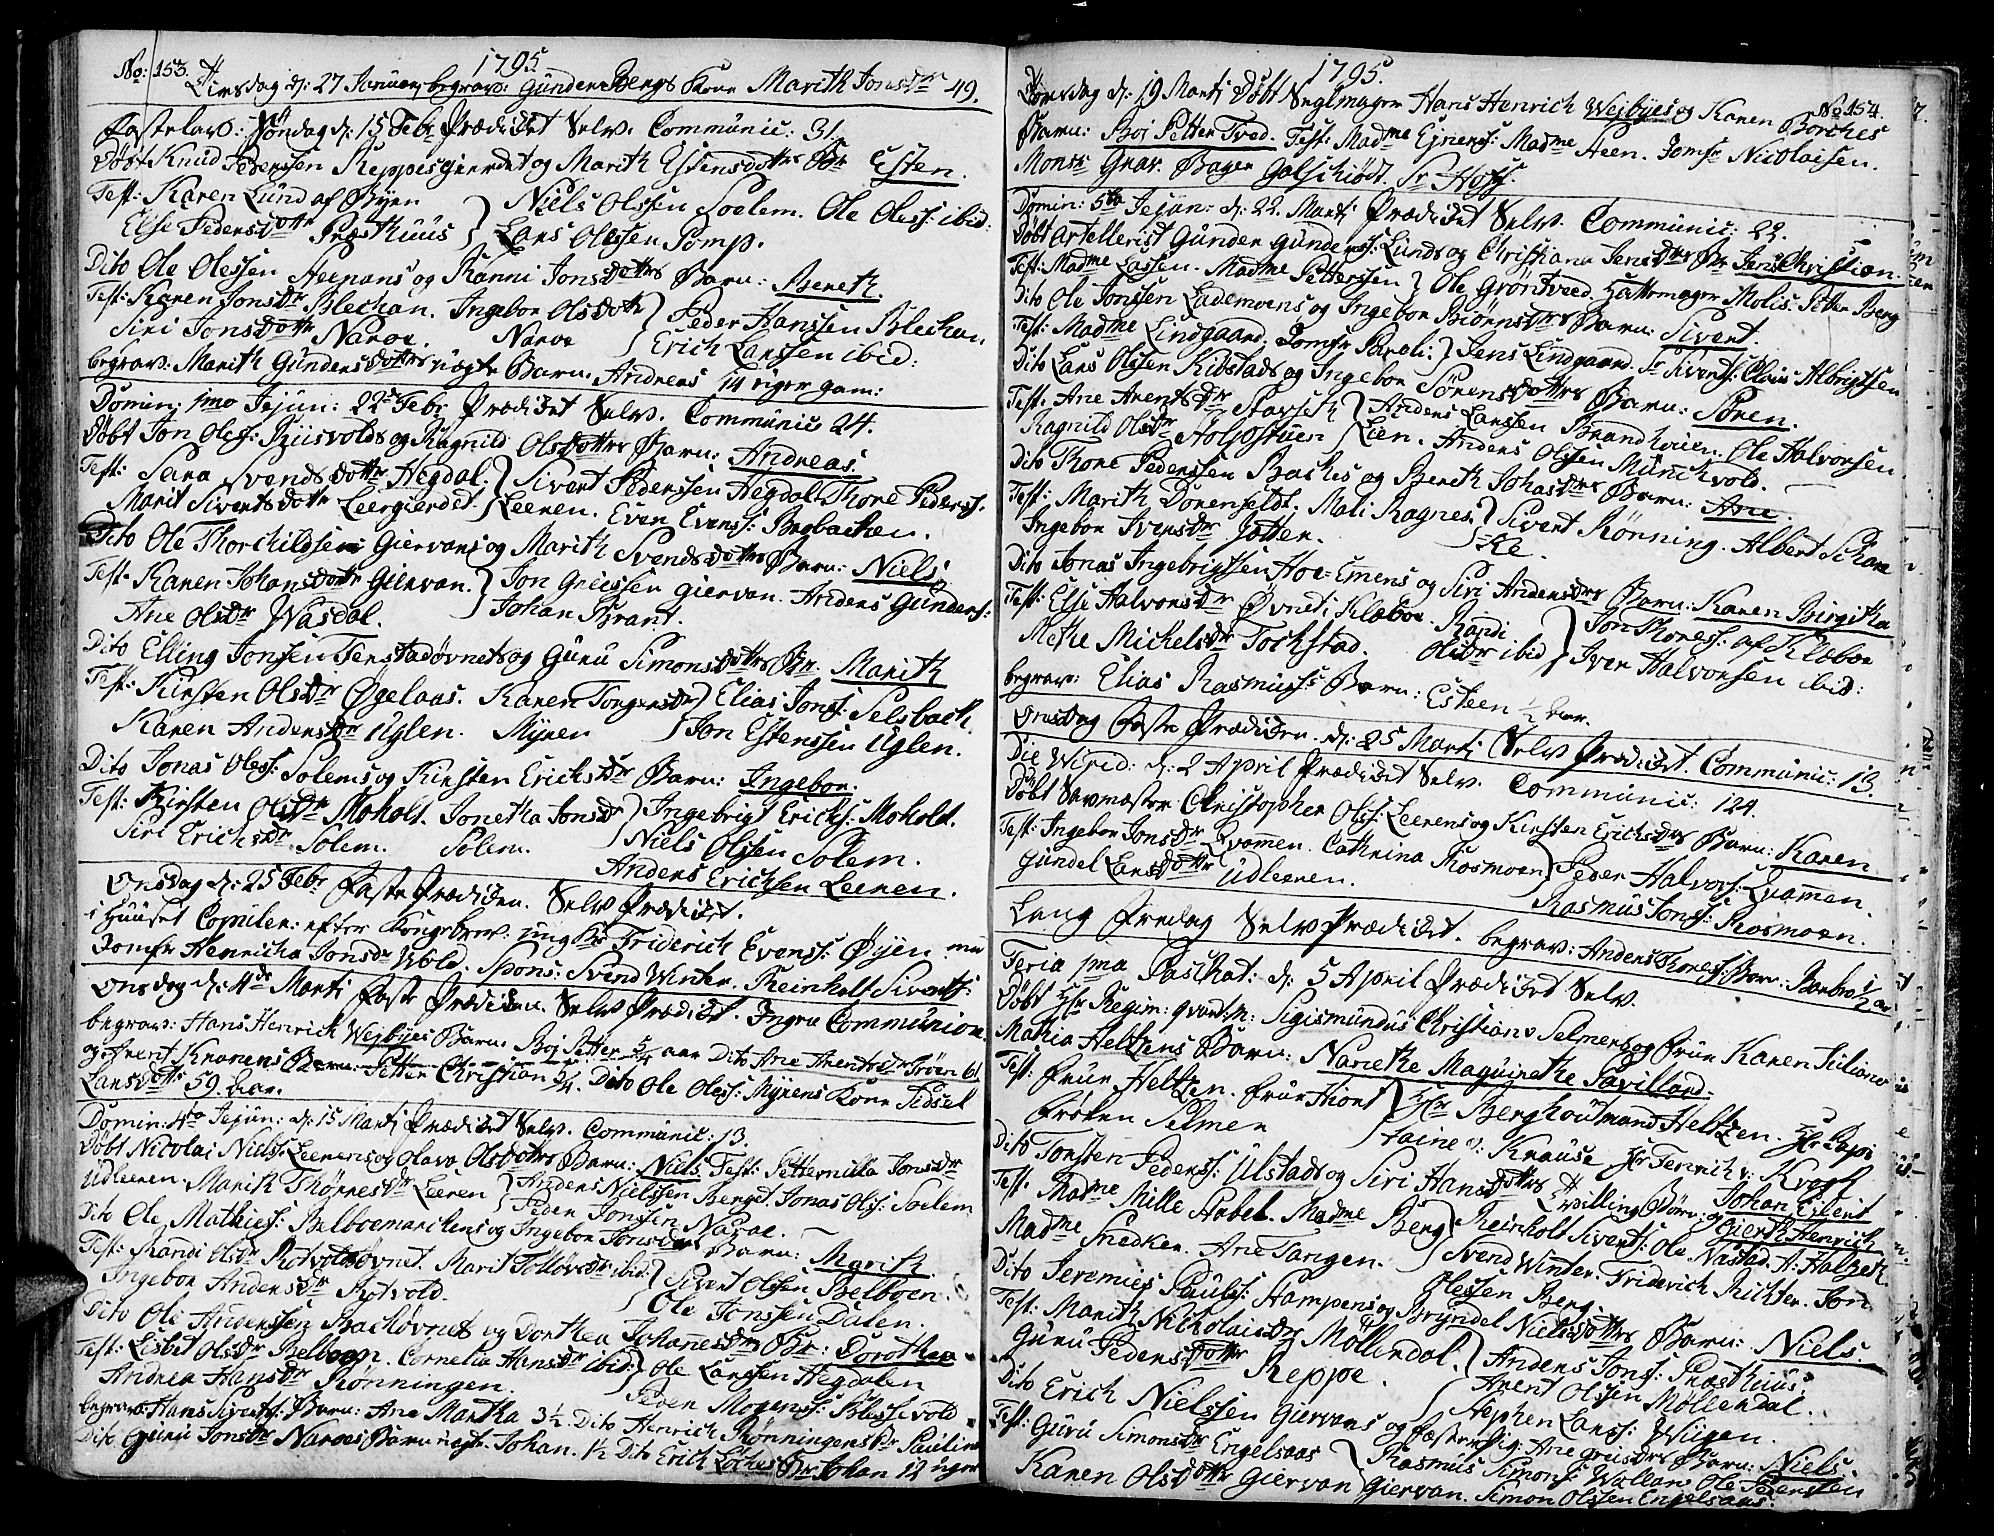 No: 153. 1795
Tirsdag d: 27 Januar, begrav: Gunder Bergs Kone Marith Jonsdr 49.
Fastelav: Søndag d: 15 Febr Prædiket Selv. Communic: 31.
Døbt Knud Pederssen Reppesgierdet og Marith Estensdotters Br Esten.
Test: Karen Lund af Byen } Niels Olssen Solem. Ole Oless: ibid:
Else Pedersdotter Præsthuus } Lars Olessen Pomp.
Dito Ole Olessen Heenans og Ranni Jonsdotters Barn: Bereth.
Test: Karen Jonsdr Blechan. Ingebor Olsdotter } Peder Hanssen Blechan
Siri Jonsdotter Naroe. Naroe } Erich Larssen ibid:
begrav: Marith Gundersdotters uægte Barn. Andreas 14 uger gam:
Domin: 1mo Jejun: 22 Febr Prædiket Selv. Communic 24.
Døbt Jon Oless: Riisvolds og Ragnild Olsdotters Barn: Andreas.
Test: Sara Svendsdotter Hegdal. } Sivert Pederssen Hegdal. Thore Pederss.
Marit Sivertsdotter Leergierdet } Leeren. Even Evens: Brobachen.
Dito Ole Thorchildsen Giervans og Marith Svendsdotters Barn: Niels
Test: Karen Johansdotter Giervan. } Jon Greissen Giervan. Anders Gunders:
Ane Olsdr Wasdal. } Johan Brant.
Dito Elling Jonsen Tenstadøvnets og Guru Simonsdotters Br. Marith
Test: Kirsten Olsdr Øgelaas. Karen Torgersdr } Elias Jons: Selsbach
Karen Andersdr Uglen. Myren } Jon Estenssen Uglen.
Dito Jonas Oless: Solems og Kirsten Erichsdr Barn: Ingebor.
Test: Kirsten Olsdr Moholt. Jonetha Jonsdr } Ingebrigt Erichs: Moholt.
Siri Erichsdr Solem. Solem. } Niels Olssen Solem.
Anders Erichsen Leeren.
Onsdag d: 25 Febr Faste Prædiken. Selv Prædiket.
i Huuset Copuler: efter Kongebrev: ungkr Friderich Evens: Øyen med
Jomfr Henricha Jonsdr Wold. Spons: Svend Winter. Reinholt Siverts:
Onsdag d: 4de Marti Faste Prædiken. Selv Prædiket. Ingen Communion.
begrav: Hans Henrich Wejbyes Barn: Boj Petter 5/4 aar Dito Ane Arentsdr Trøen 61
og Arent Knarens Barn: Petter Christian 5/4. Dito Ole Oless: Myrens Kone Sidsel
Larsdotter 59. Aar.
Domin: 4to Jejun: d: 15 Marti Prædiket Selv. Communic: 13.
Døbt Nicolai Niels: Leerens og Olava Olsdotters Barn: Niels. Test: Petternilla Jonsdr
Udleeren. Marit Thoresdr Leeren } Anders Nielssen Berget. Jonas Ols: Soelem
Peder Jonssen Naroe.
Dito Ole Mathies: Belboemarchens og Ingebor Jonsdr Barn: Marith.
Test: Randi Olsdr Rotvoldsøvnet. Marit Tolløvsdr ibid: } Sivert Olssen Belboen.
Ingebor Andersdr Rotvold. } Ole Jonssen Dalen.
Dito Ole Anderssen Bachøvnets og Dorthea Johannesdr Br: Dorothea
Test: Lisbet Olsdr Belboen. Cornelia Hansdr ibid: } Ole Larssen Hegdalen
Andrea Hansdr Rønningen. Peder Mogens: Blessevold
begrav: Hans Siverts: Barn: Ane Martha 3½. Dito Henrich Rønningens Br Pauline
Dito Guru Jonsdr Naroes Barn uegte: Johan. ½ Dito Erich Loches Br Johan 12 uger
1795. No 154.
Torsdag d: 19 Marti Døbt Seglmager Hans Henrich Wejbyes og Karen Borches
Barn: Boj Petter Tved. Test: Madme Ejriens: Madme Heen. Jomfr Nicolaisen.
Monsr Grav. Bager Galschiødt. Sr Hoff.
Domin: 5ta Jejun: d: 22. Marti Prædiket Selv. Communic: 22.
Døbt Artellerist Gunder Gunderss: Lunds og Christiana Jensdrs Br Jens Christian.
Test: Madme Lassen. Madme Petterssen } Ole Grøntveed. Hattemager Molis. Petter Berg
Dito Ole Jonssen Lademoens og Ingebor Biørnsdrs Barn: Sivert.
Test: Madme Lindgaard. Jomfr Paroli: } Jens Lindgaard. Sr Siverts: Claus Albrigtsen
Dito Lars Olssen Kibstads og Ingebor Sørensdotters Barn: Søren.
Test: Ane Arentsdr Stavseth } Anders Larssen Brandhøien. Ole Halvorsen
Ragnild Olsdr Holsostuen } Lien. Anders Olssen Munchvold.
Dito Thore Pederssen Baches og Bereth Johansdrs Barn: Ane.
Test: Marith Dorenfeldt. Mali Ragnes. } Sivert Rønning. Albert Schare
Ingebor Iversdr Jotter. } Ke.
Dito Jonas Ingebrigtsen Hoe-Emens og Siri Andersdrs Barn: Karen Birgitha
Test: Else Halvorsdr Øvnet i Klæboe. Randi } Jon Thoress: af Klæboe
Mette Michelsdr Tochstad. Olsdr ibid } Iver Halvorsen ibid:
begrav: Elias Rasmuss: Barn: Esteen ½ Aar.
Onsdag Faste Prædiken. d: 25 Marti Selv Prædiket. Communic: 13.
Die Virid: d: 2 April Prædiket Selv. Communic: 124.
Døbt Savmæster Christopher Ols: Leerens og Kirsten Erichsdrs Barn: Karen.
Test: Ingebor Jonsdr Qvamen. Cathrina Rosmoen } Peder Halvors: Qvamen.
Gundel Larsdotter Udleeren. Rasmus Jons: Rosmoen.
Lang Fredag Selv Prædiket. begrav: Anders Thores: Barn: Barbro ½ aar
Feria 1ma Paschat: d: 5 April Prædiket Selv.
Døbt Hr Regim: qvart:m: Sigismundus Christian v Selmers og Frue Karen Juliane
Maria Heltzens Barn: Nariethe Maguirethe Pavillard.
Test: Frue Heltzen. Frue Hiort } Hr Berghoutmand Heltzen. Hr Capi
Frøken Selmer } taine v: Krause Hr Fenrich v: Krogh
Dito Torsten Peders: Ulstads og Siri Hansdotters Tvilling Børn: Johan Eilert
og Gierth Henrich
Test. Madme Mille Aabel. Madme Berg } Reinholt Siverts: Ole Nastad. A: Halseth
Madme Snedker. Ane Tangen. } Svend Winter. Friderich Richter. Jon
Olessen Berg.
Dito Jeremies Pauls: Hampens og Bryndel Nielsdotters Barn: Niels.
Test: Marith Nicholaisdr Møllendal. } Anders Jons: Præsthuus.
Guru Pedersdotter Reppe. } Arent Olssen Møllendal.
Stephen Lars: Wiigen.
Dito Erich Nielssen Giervans og Fæstepig: Ane Greisdrs Barn: Niels.
Test: Guru Simonsdr Engelsaas } Rasmus Simons: Wallan. Ole Pederssen
Karen Olsdotter Giervan } Giervan. Simon Olssen Engelsaas.